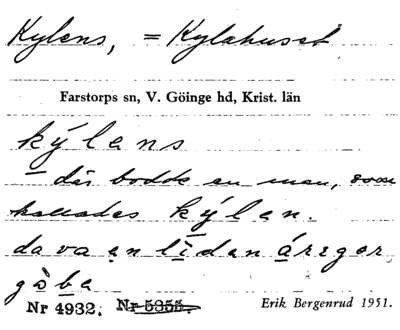 Kylens, = Kylahuset
Farstorps sn, V. Göinge hd, Krist. län
kýlens
där bodde en man, som
kallades kýlen.
da va en lidan áregor,
gàba
Nr 4932. Nr 5355.
Erik Bergenrud 1951.